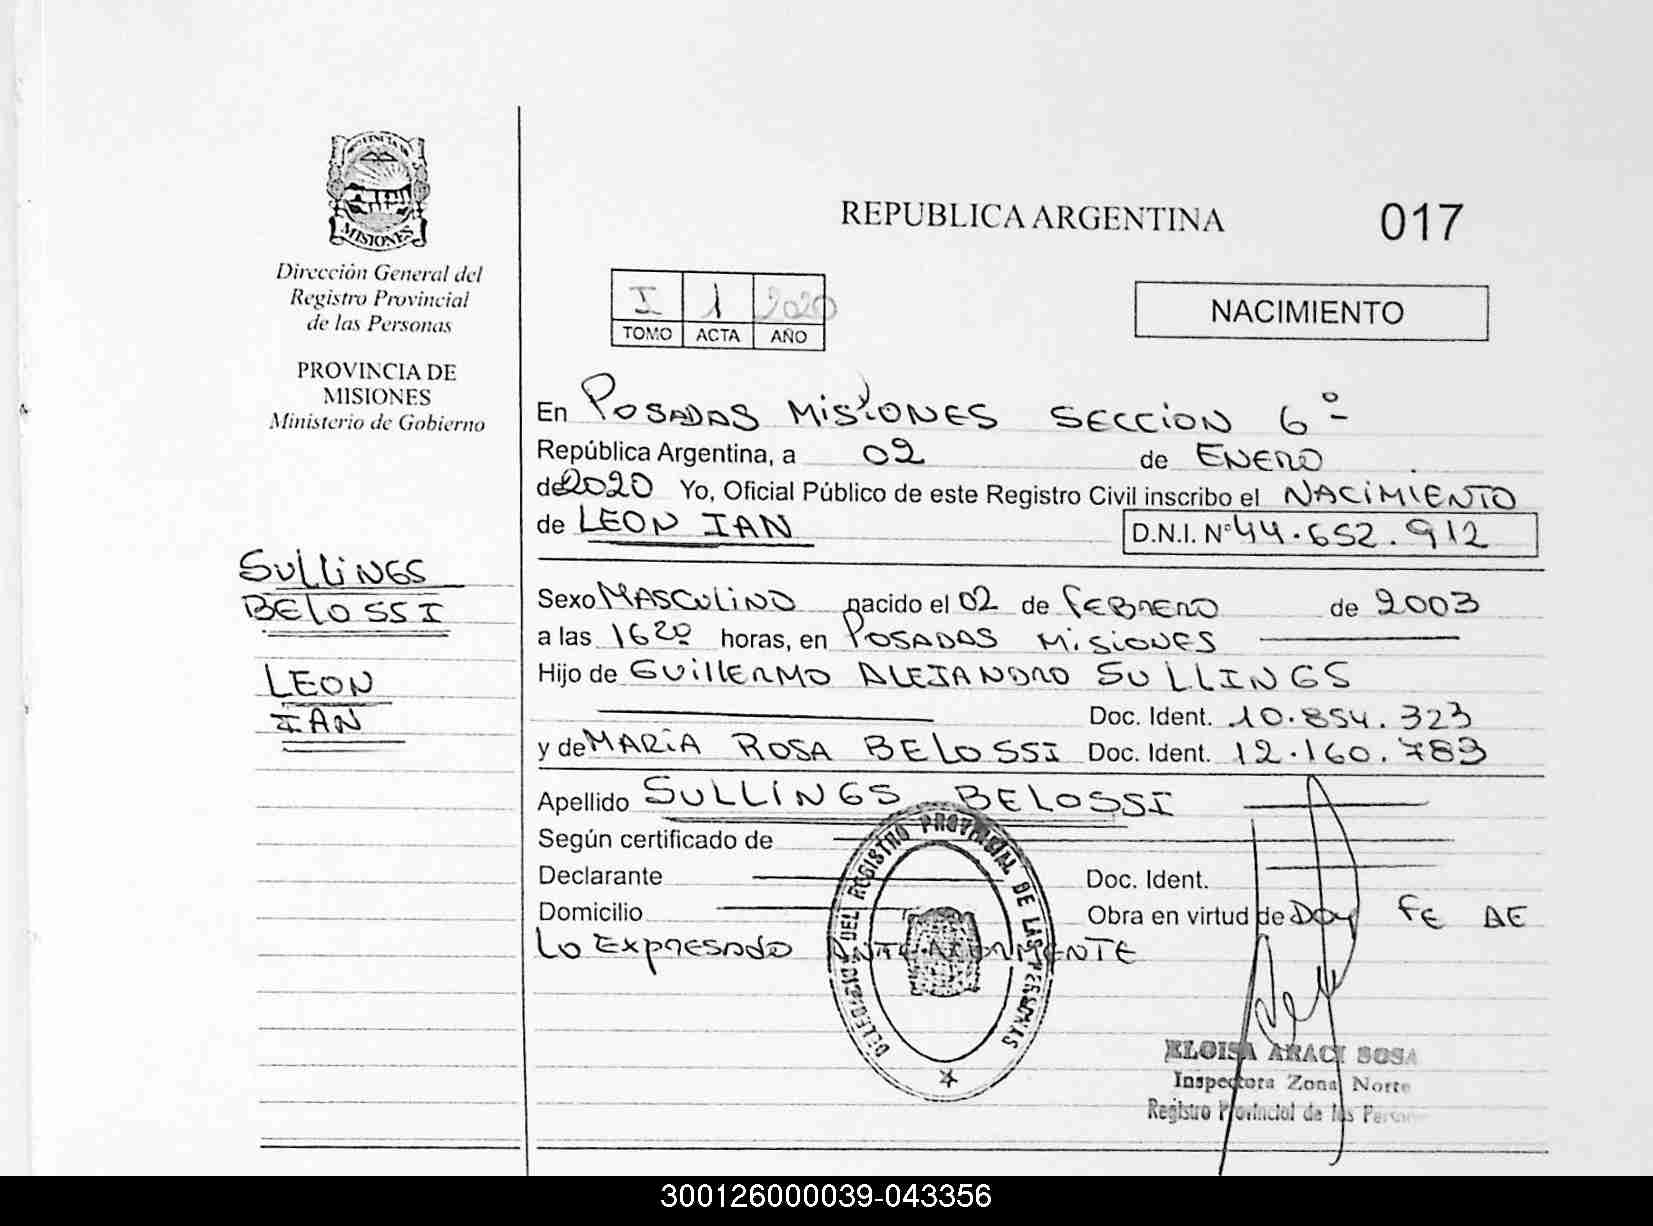 PROVINCIA DE
MISIONES
Dirección General del
Registro Provincial
de las Personas
PROVINCIA DE
MISIONES
Ministerio de Gobierno
SULLINGS
BELOSSI
LEON
IAN
REPUBLICA ARGENTINA
017
I 1 2020
TOMO ACTA AÑO
NACIMIENTO
En POSADAS MISIONES SECCION 6º
República Argentina, a 02 de ENERO
de 2020 Yo, Oficial Público de este Registro Civil inscribo el NACIMIENTO
de LEON IAN D.N.I. Nº 44.652.912
Sexo MASCULINO nacido el 02 de FEBRERO de 2003
a las 1620 horas, en POSADAS MISIONES
Hijo de GUILLERMO ALEJANDRO SULLINGS
Doc. Ident. 10.854.323
y de MARIA ROSA BELOSSI Doc. Ident. 12.160.783
Apellido SULLINGS BELOSSI
Según certificado de
Declarante Doc. Ident.
Domicilio Obra en virtud de Doy FE DE
Lo Expresado ANTERIORMENTE
DEL REGISTRO PROVINCIAL DE LAS PERSONAS
ELOISA ARACI SOSA
Inspectora Zona Norte
Registro Provincial de las
300126000039-043356